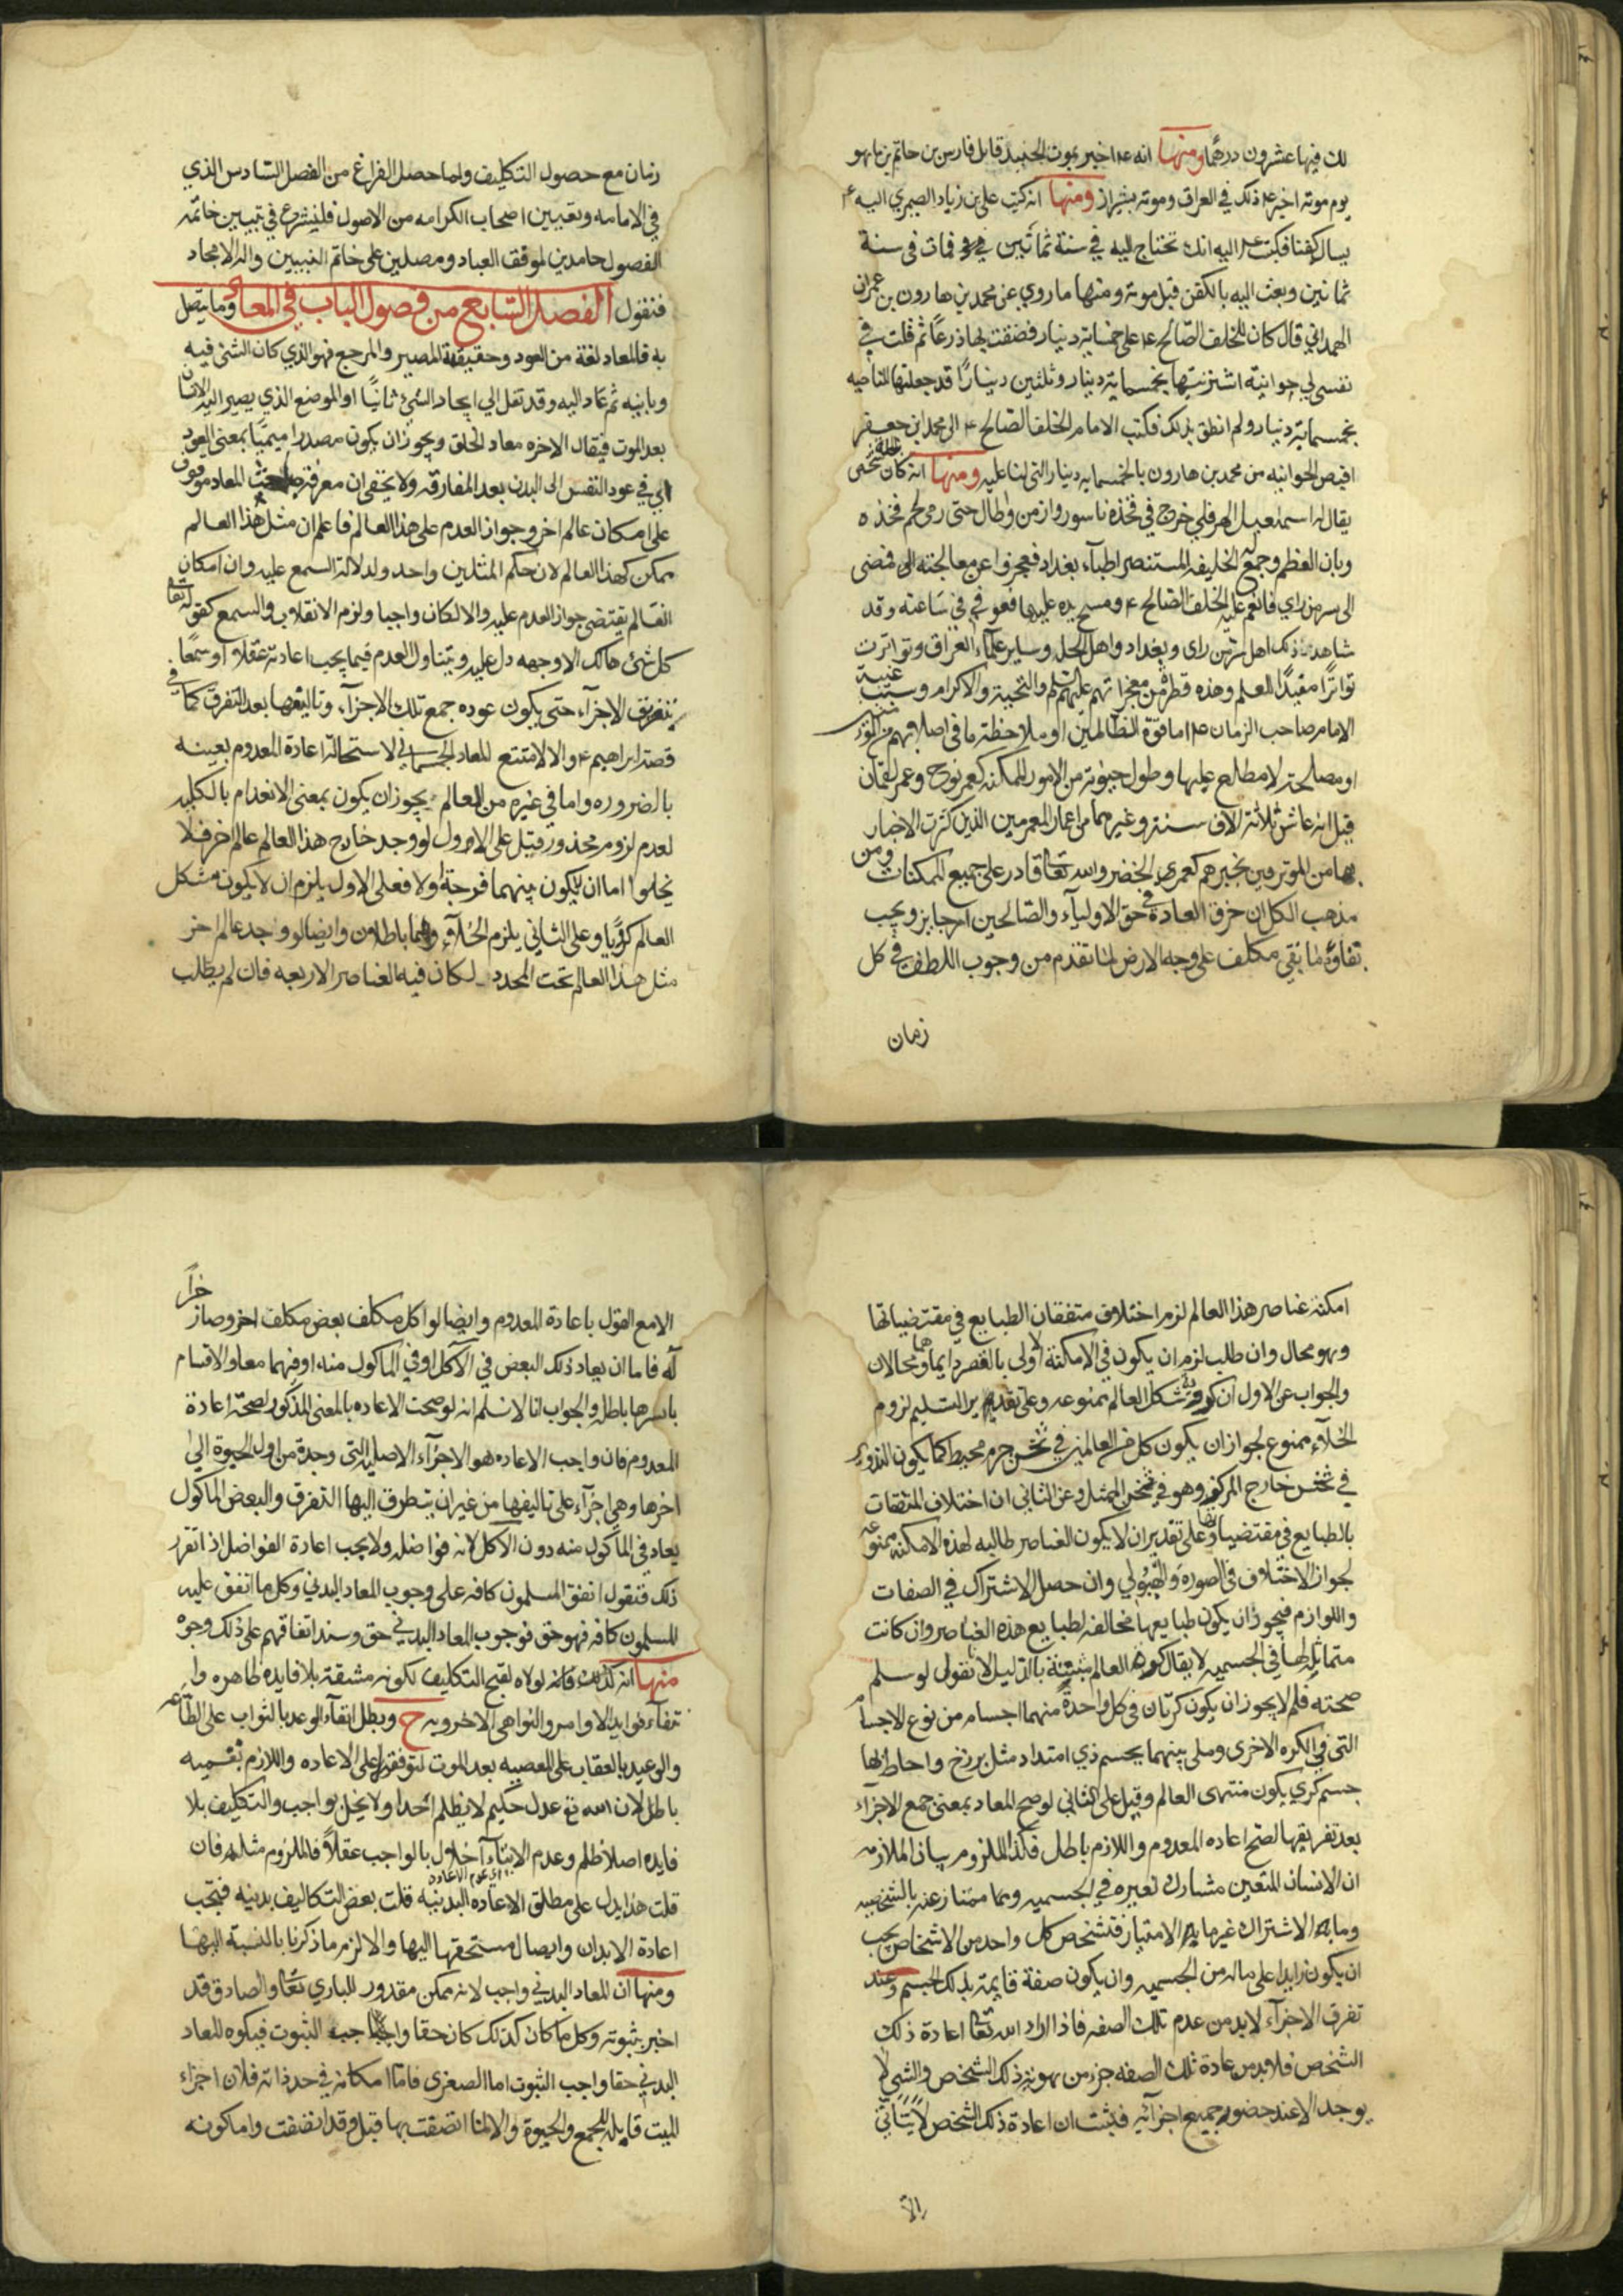 لك فيها عشرون درهما ومنها انه ع اخبر بموت الجنيد قاتل فارس بن حاتم بن ماهو
يوم موته اخبر ع ذلك في العراق وموته بشيراز ومنها انه كتب علي بن زياد الصيمري اليه ع
يسال كفنا فكتب ع اليه انك تحتاج اليه في سنة ثمانين فمات في سنة
ثمانين وبعث اليه بالكفن قبل موته ومنها ما روي عن محمد بن هارون بن عمران
الهمداني قال كان للخلف الصالح ع على خمسماية دينار فضقت بها ذرعا ثم قلت في
نفسي لي حوانيت اشتريتها بخمسماية دينار وثلثين دينارا قد جعلتها للناحيه
بخمسماية دينار ولم انطق بذلك فكتب الامام الخلف الصالح ع الى محمد ابن جعفر
اقبض الحوانيه من محمد بن هارون بالخمسمايه دينار التي لنا عليه ومنها انه كان بالحلة شخص
يقال له اسمعيل الهرقلي خرج في فخذه ناسور وازمن وطال حتى رمى لحم فخذه
وبان العظم وجمع له الخليفة المستنصر اطباء بغداد فعجزوا عن معالجته فمضى
الى سر من راي فانعم عليه الخلف الصالح ع ومسح يده عليها فعوفي في ساعته وقد
شاهد ذلك اهل سر من راى وبغداد واهل الحلة وساير علماء العراق وتواترت
تواترا مفيدا للعلم وهذه قطرة من معجزاتهم عليهم السلم والتحية والاكرام وسبب غيبة
الامام صاحب الزمان ع اما قوة الظالمين او ملاحظة ما في اصلابهم من
او مصلحة لا مطلع عليها وطول حيوته من الامور الممكنة كعمر نوح وعمر لقمان
قيل انه عاش ثلاثة الاف سنة وغيرهما من اعمار المعمرين الذين كثرت الاخبار
بها من الموثوقين بخبرهم كعمر الخضر والله تعا قادر على جميع الممكنات ومن
مذهب الكل ان خرق العادة في حق الاولياء والصالحين امر جايز ويجب
بقاوه ما بقي مكلف على وجه الارض لما تقدم من وجوب اللطف في كل
زمان
زمان مع حصول التكليف ولما حصل الفراغ من الفصل السادس الذي
في الامامه وتعيين اصحاب الكرامه من الاصول فلنشرع في تبيين خاتمة
الفصول حامدين لموفق العباد ومصلين على خاتم النبيين واله الامجاد
فنقول الفصل السابع من فصول الباب في المعاد وما يتصل
به فالمعاد لغة من العود وحقيقته المصير والمرجع فهو الذي كان الشئ فيه
وباينه ثم عاد اليه وقد نقل الي ايجاد الشئ ثانيا او الموضع الذي يصير اليه الانسان
بعد الموت فيقال الاخره معاد الخلق ويجوز ان يكون مصدرا ميميا بمعنى العود
اي في عود النفس الى البدن بعد المفارقة ولا يخفى ان معرفة مباحث المعاد موقوف
على امكان عالم اخر وجواز العدم على هذا العالم فاعلم ان مثل هذا العالم
ممكن كهذا العالم لان حكم المثلين واحد ولدلالة السمع عليه وان امكان
العالم يقتضي جواز العدم عليه والا لكان واجبا ولزم الانقلاب والسمع كقوله تعا
كل شئ هالك الا وجهه دل عليه ويتناول العدم فيما يجب اعادته عقلا او سمعا
بتفريق الاجزاء حتى يكون عوده جمع تلك الاجزاء وتاليفها بعد التفرق كما في
قصة ابراهيم ع والا لامتنع المعاد الجسماني لاستحالة اعادة المعدوم بعينه
بالضروره واما في غيره من العالم يجوز ان يكون بمعنى الانعدام بالكليه
لعدم لزوم محذور قيل على الاول لو وجد خارج هذا العالم عالم اخر فلا
يخلوا اما ان يكون بينهما فرجة او لا فعلى الاول يلزم ان لا يكون شكل
العالم كرويا وعلى الثاني يلزم الخلاء وهما باطلان وايضا لو وجد عالم اخر
مثل هذا العالم تحت المحدد لكان فيه العناصر الاربعه فان لم يطلب
امكنة عناصر هذا العالم لزم اختلاف متفقات الطبايع في مقتضياتها
وهو محال وان طلب لزم ان يكون في الامكنة الاولى بالقسر دايما وهما محالان
والجواب عن الاول ان كروية شكل العالم ممنوعه وعلى تقدير التسليم لزوم
الخلاء ممنوع لجواز ان يكون كل من العالمين في ثخن جرم محيط كما يكون التدوير
في ثخن خارج المركز وهو في ثخن الممثل وعن الثاني ان اختلاف المتفقات
بالطبايع في مقتضياتها وعلى تقدير ان لا يكون العناصر طالبه لهذه الامكنة ممنوعه
لجواز الاختلاف في الصورة والهيولي وان حصل الاشتراك في الصفات
واللوازم فيجوز ان يكون طبايعها مخالفه لطبايع هذه العناصر وان كانت
متماثلة لها في الجسميه لا يقال كروية العالم مثبتة بالدليل لانا نقول لو سلم
صحته فلم لا يجوز ان يكون كرتان في كل واحدة منهما اجسام من نوع الاجسام
التى في الكره الاخرى وملى بينهما بجسم ذي امتداد مثل برزخ واحاط بها
جسم كري يكون منتهى العالم وقيل على الثاني لو صح المعاد بمعنى جمع الاجزاء
بعد تفريقها لصح اعاده المعدوم واللازم باطل فكذا الملزوم بيان الملازمه
ان الانسان المتعين مشارك لغيره في الجسميه وممتاز عنه بالشخصيه
وما به الاشتراك غير ما به الامتياز فتشخص كل واحد من الاشخاص يجب
ان يكون زايدا على ماله من الجسميه وان يكون صفة قايمة بذلك الجسم وعند
تفرق الاجزاء لا بد من عدم تلك الصفه فاذا اراد الله تعا اعادة ذلك
الشخص فلا بد من اعادة تلك الصفه جزء من هوية ذلك الشخص والشي لا
يوجد الا عند حضور جميع اجزائه فيثبت ان اعادة ذلك الشخص لا يتاتى
الا
الا مع القول باعادة المعدوم وايضا لو اكل مكلف بعض مكلف اخر وصار جزأ
له فاما ان يعاد ذلك البعض في الآكل او في الماكول منه او فيهما معا والاقسام
باسرها باطلة والجواب انا لا نسلم انه لو صحت الاعاده بالمعنى المذكور لصحت اعادة
المعدوم فان واجب الاعاده هو الاجزاء الاصلية التى وجدت من اول الحيوة الى
اخرها وهي اجزاء على تاليفها من غير ان يتطرق اليها التفرق والبعض الماكول
يعاد في الماكول منه دون الآكل لانه فواضله ولا يجب اعادة الفواضل اذا تقرر
ذلك فنقول اتفق المسلمون كافه على وجوب المعاد البدني وكل ما اتفق عليه
المسلمون كافه فهو حق فوجوب المعاد البدني حق وسند اتفاقهم على ذلك وجوه
منها انه لولاه لقبح التكليف لكونه مشقة بلا فايده ظاهره لا
نتفاء فوايد الاوامر والنواهي الاخرويه ح وبطل ايفاء الوعد بالثواب على الطاعه
والوعيد بالعقاب على المعصيه بعد الموت لتوقفه على الاعاده واللازم بقسميه
باطل لان الله تع عدل حكيم لا يظلم احدا ولا يخل بواجب والتكليف بلا
فايده اصلا ظلم وعدم الايفاء اخلال بالواجب عقلا فالملزوم مثله فان
قلت هذا يدل على مطلق الاعاده البدنيه قلت بعض التكاليف بدنيه فيجب
اعادة الابدان وايصال مستحقها اليها والا لزم ما ذكرنا بالنسبة اليها
ومنها ان المعاد البدني واجب لانه ممكن مقدور للباري تعا والصادق قد
اخبر بثبوته وكل ما كان كذلك كان حقا واجب الثبوت فيكون المعاد
البدني حقا واجب الثبوت اما الصغرى فاما امكانه في حد ذاته فلان اجزاء
الميت قابلة للجمع والحيوة والا لما اتصفت بها قبل وقد اتصفت واما كونه